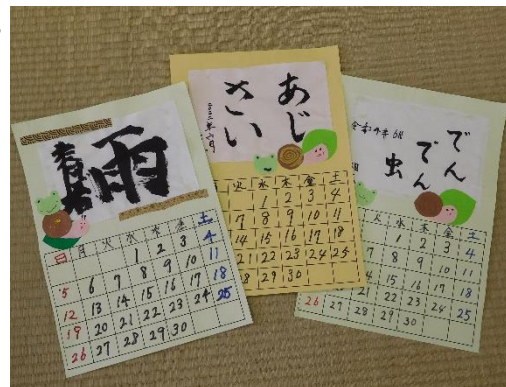 雨
日 月 火 水 木 金 土
1 2 3 4
5 6 7 8 9 10 11
12 13 14 15 16 17 18
19 20 21 22 23 24 25
26 27 28 29 30
あじ
さい
火 水 木 金 土
1 2 3 4
7 8 9 10 11
14 15 16 17 18
21 22 23 24 25
28 29 30
でん
でん
虫
令和4年6月
火 水 木 金 土
1 2 3 4
7 8 9 10 11
14 15 16 17 18
21 22 23 24 25
26 27 28 29 30